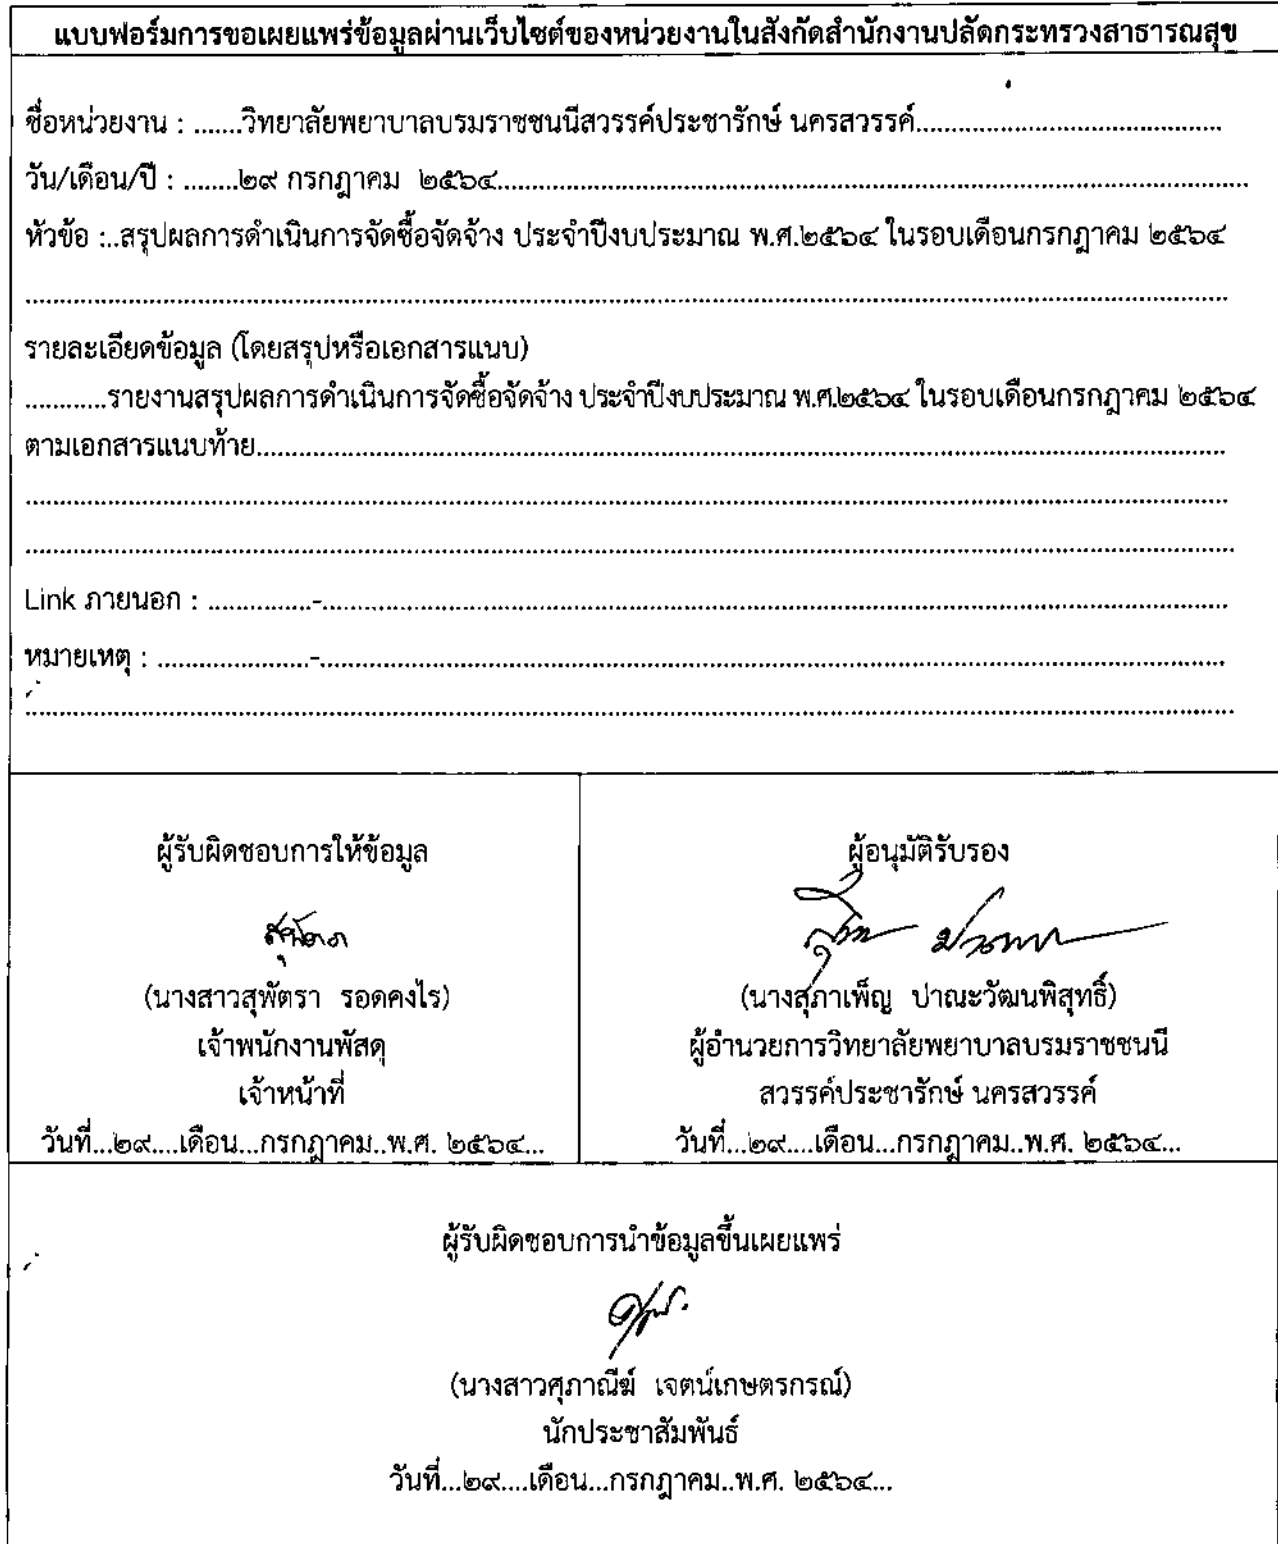 แบบฟอร์มการขอเผยแพร่ข้อมูลผ่านเว็บไซต์ของหน่วยงานในสังกัดสำนักงานปลัดกระทรวงสาธารณสุข
ชื่อหน่วยงาน : .......วิทยาลัยพยาบาลบรมราชชนนีสวรรค์ประชารักษ์ นครสวรรค์.............................................
วัน/เดือน/ปี : ........๒๙ กรกฎาคม ๒๕๖๔.............................................
หัวข้อ :..สรุปผลการดำเนินการจัดซื้อจัดจ้าง ประจำปีงบประมาณ พ.ศ.๒๕๖๔ ในรอบเดือนกรกฎาคม ๒๕๖๔
รายละเอียดข้อมูล (โดยสรุปหรือเอกสารแนบ)
............รายงานสรุปผลการดำเนินการจัดซื้อจัดจ้าง ประจำปีงบประมาณ พ.ศ.๒๕๖๔ ในรอบเดือนกรกฎาคม ๒๕๖๔
ตามเอกสารแนบท้าย.............................................
Link ภายนอก : ...............-.............................................
หมายเหตุ : ......................-.............................................
ผู้รับผิดชอบการให้ข้อมูล
สุพัตรา
(นางสาวสุพัตรา รอดคงไร)
เจ้าพนักงานพัสดุ
เจ้าหน้าที่
วันที่...๒๙....เดือน...กรกฎาคม..พ.ศ. ๒๕๖๔...
ผู้อนุมัติรับรอง
(นางสุภาเพ็ญ ปาณะวัฒนพิสุทธิ์)
ผู้อำนวยการวิทยาลัยพยาบาลบรมราชชนนี
สวรรค์ประชารักษ์ นครสวรรค์
วันที่...๒๙....เดือน...กรกฎาคม..พ.ศ. ๒๕๖๔...
ผู้รับผิดชอบการนำข้อมูลขึ้นเผยแพร่
(นางสาวศุภาณีฆ์ เจตน์เกษตรกรณ์)
นักประชาสัมพันธ์
วันที่...๒๙....เดือน...กรกฎาคม..พ.ศ. ๒๕๖๔...